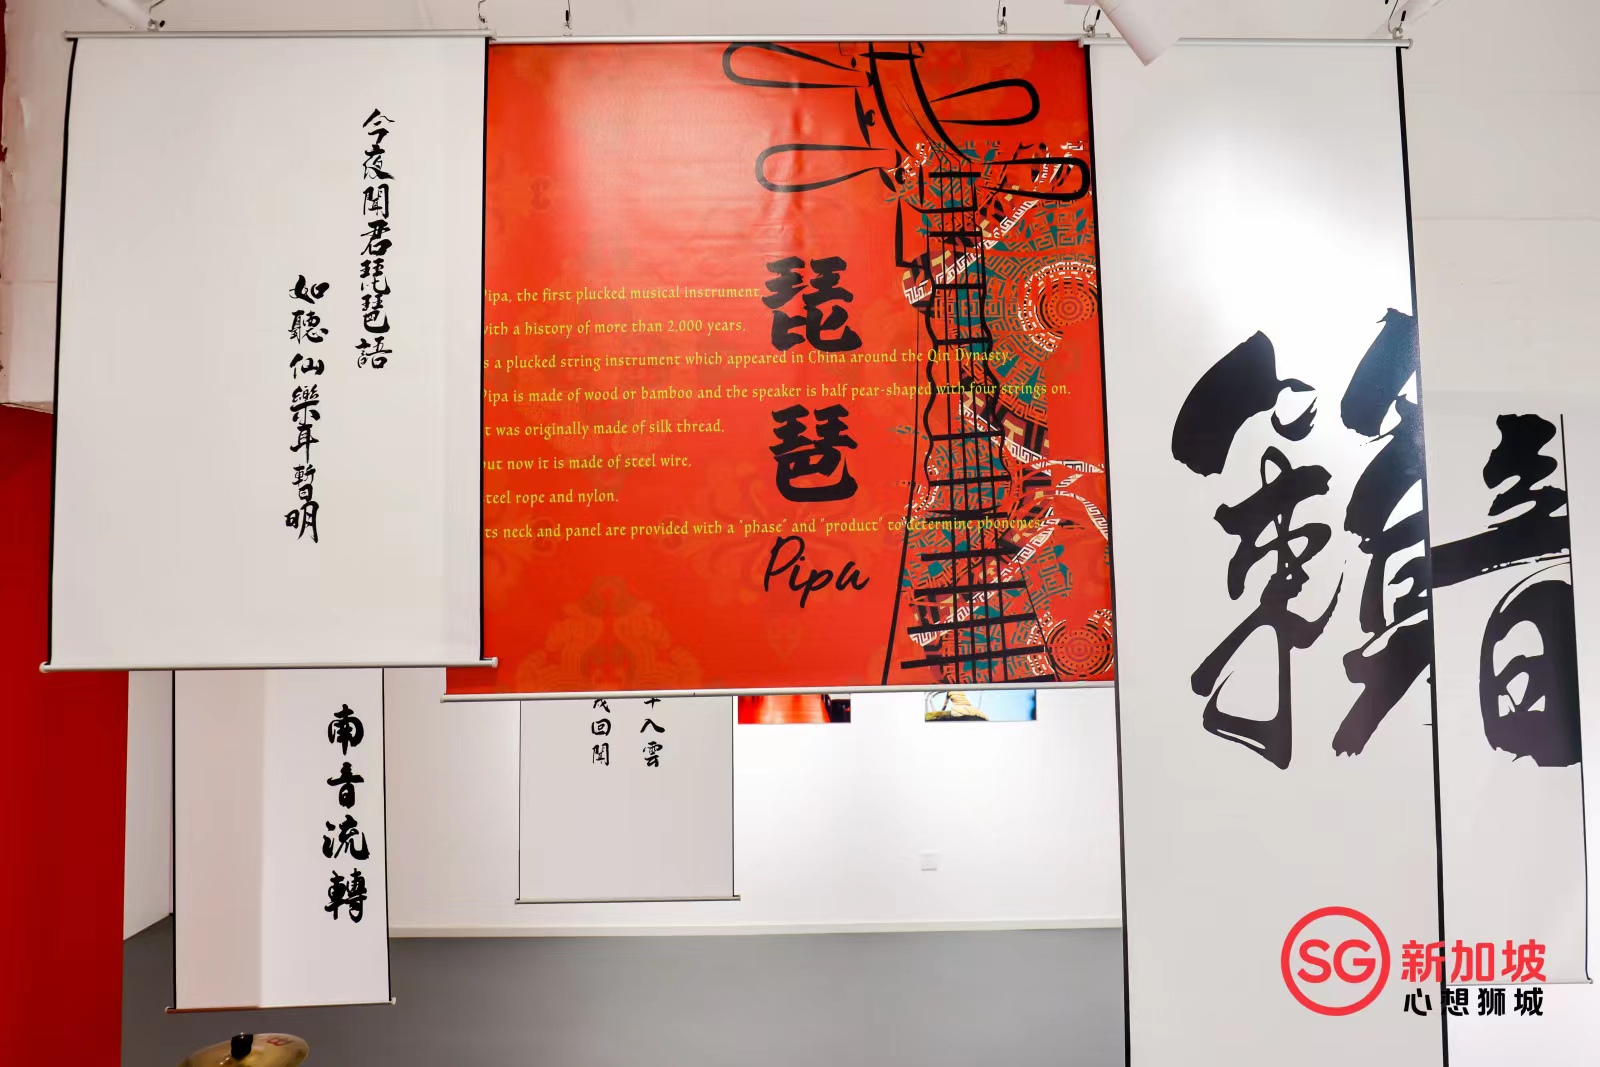 今夜聞君琵琶語
如聽仙樂耳暫明
琵琶
Pipa
Pipa, the first plucked musical instrument,
with a history of more than 2,000 years,
is a plucked string instrument which appeared in China around the Qin Dynasty.
Pipa is made of wood or bamboo and the speaker is half pear-shaped with four strings on.
It was originally made of silk thread,
but now it is made of steel wire,
steel rope and nylon.
Its neck and panel are provided with a "phase" and "product" to determine phonemes.
籟
音
南音流轉
入雲
回聞
SG 新加坡
心想狮城